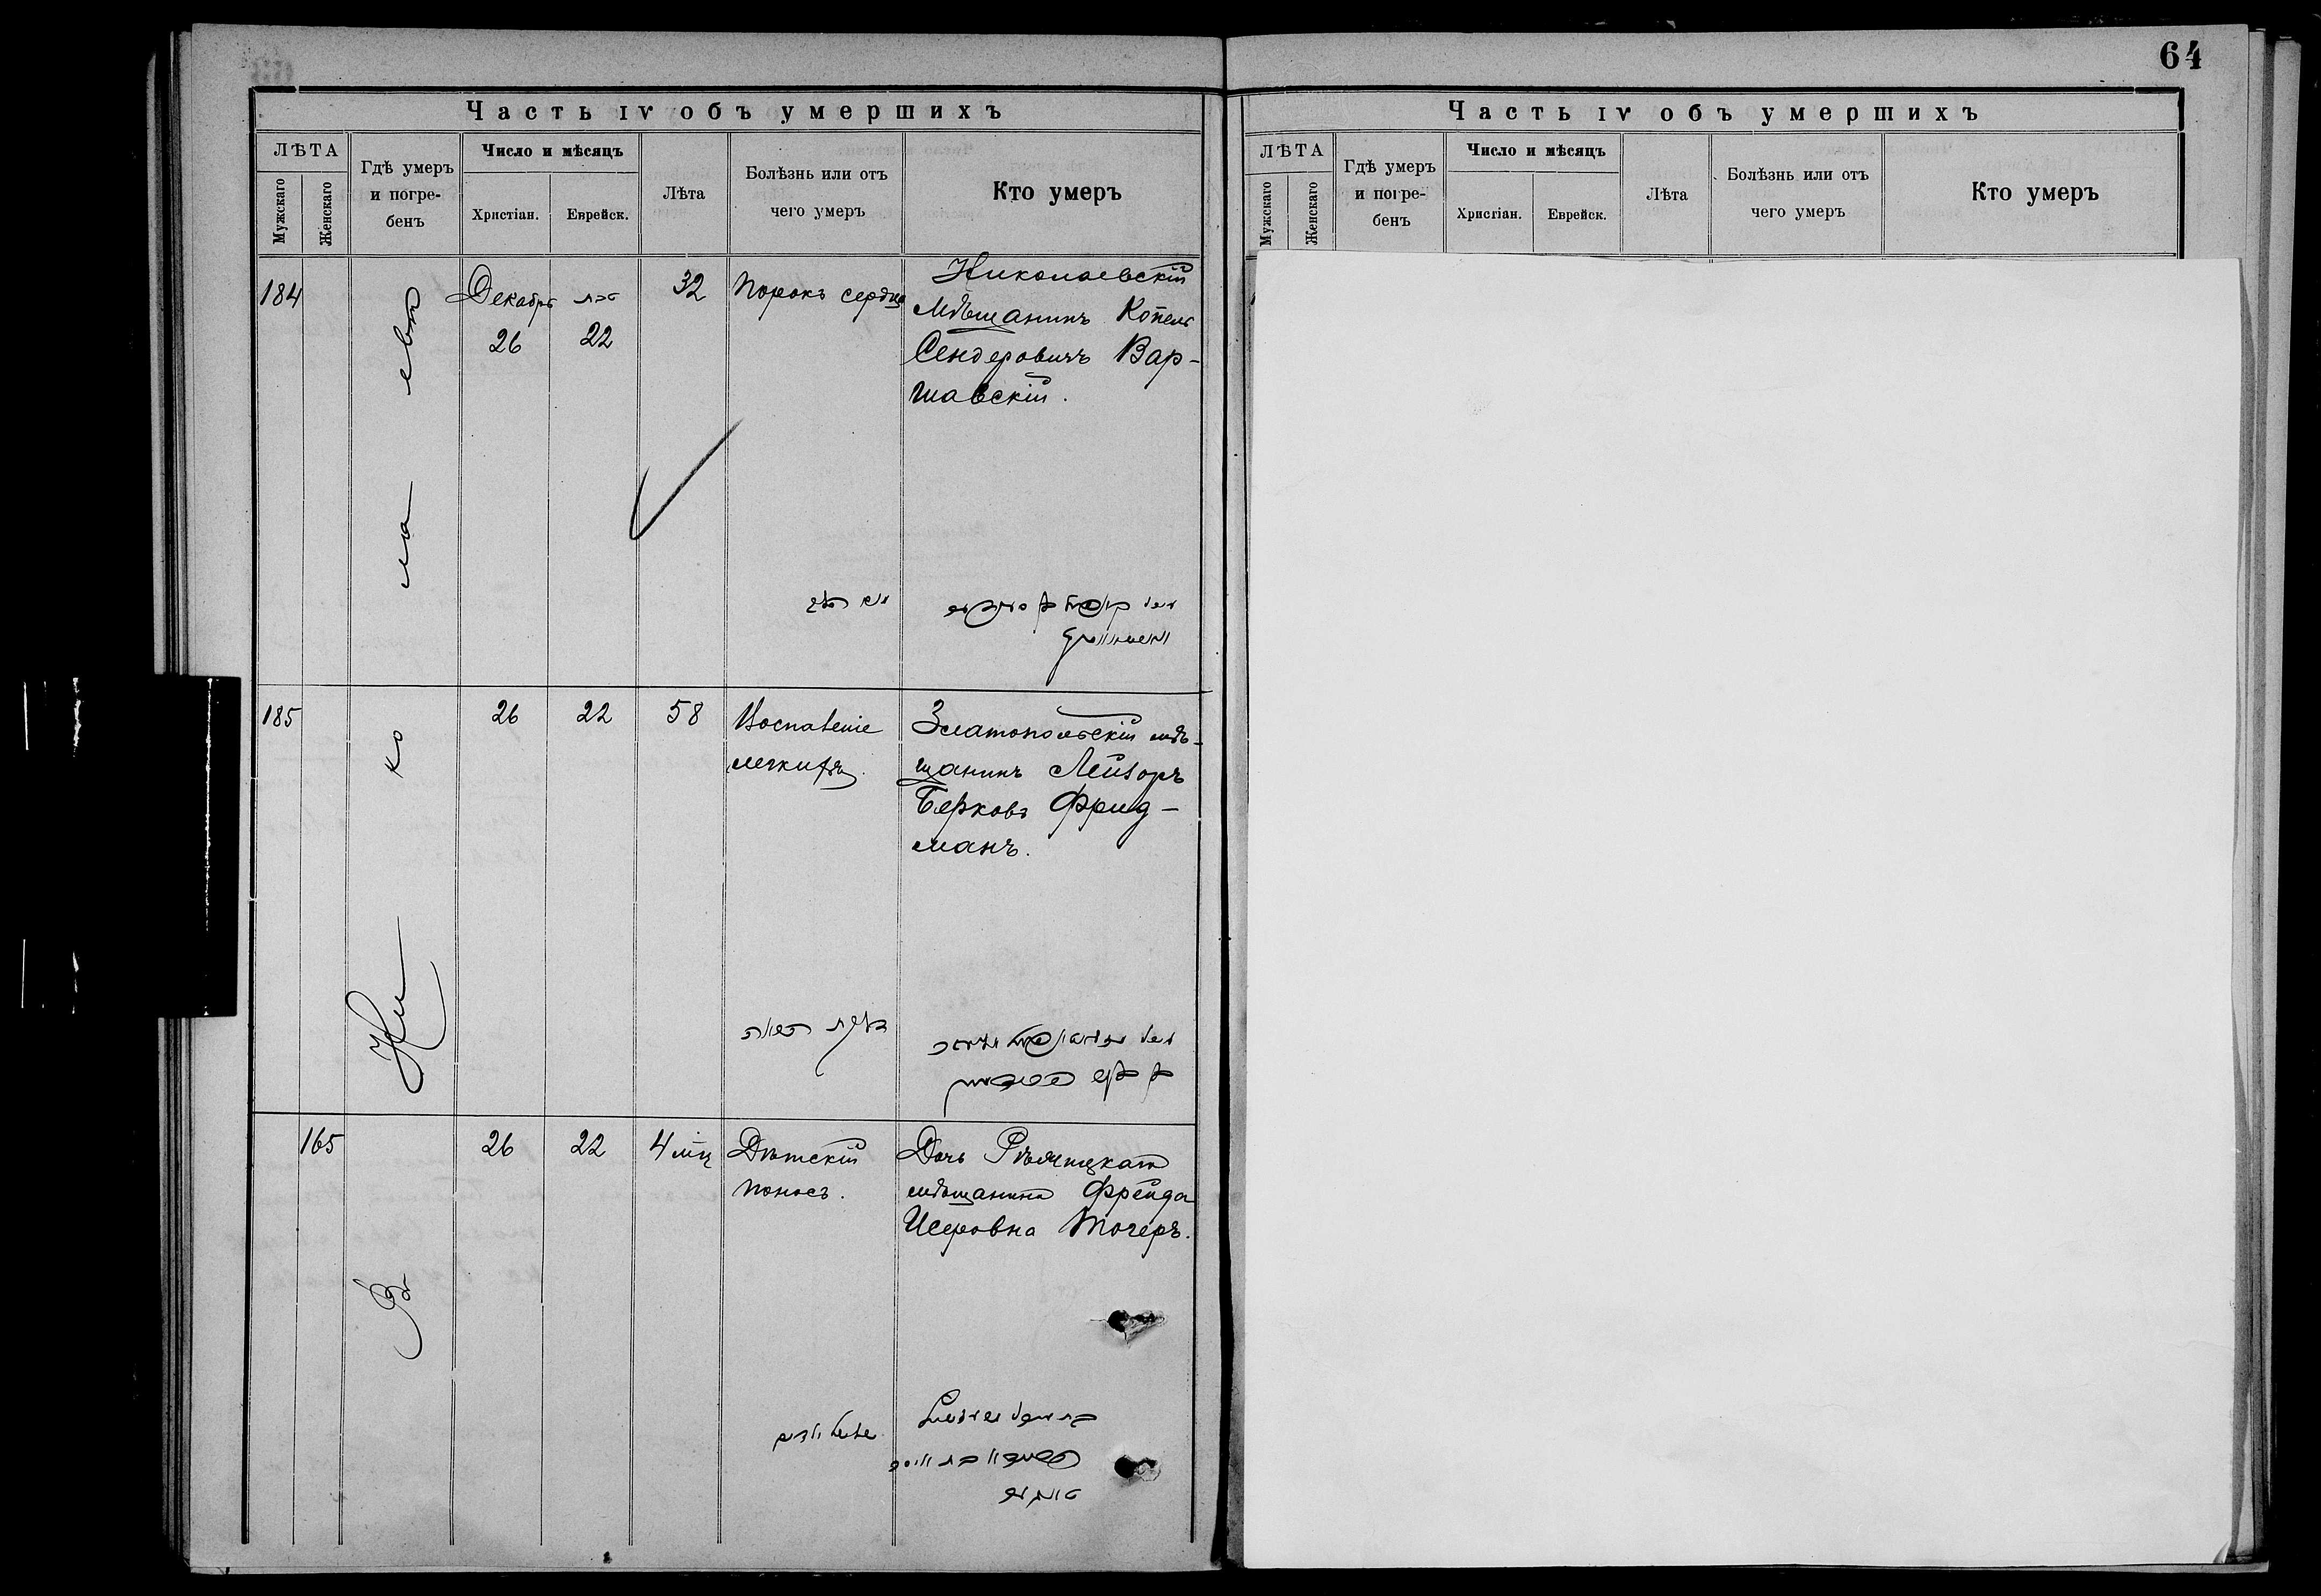 64
Часть IV объ умершихъ
ЛѢТА
Мужскаго
Женскаго
Гдѣ умеръ
и погре-
бенъ
Число и мѣсяцъ
Христіан.
Еврейск.
Лѣта
Болѣзнь или отъ
чего умеръ
Кто умеръ
184
Декабрь טבת
26 22
32
Порокъ сердца
Николаевскій
мѣщанинъ Копель
Сендеровичъ Вар-
шавскій.
185
26
22
58
Воспаленіе
легкихъ.
Златопольскій мѣ-
щанинъ Лейзоръ
Берковъ Фрид-
манъ.
165
26
22
4 мѣц
Дѣтскій
поносъ.
Дочь Рѣчицкаго
мѣщанина Фрейда
Исеровна Точеръ.
Въ Николаевѣ
Часть IV объ умершихъ
ЛѢТА
Мужскаго
Женскаго
Гдѣ умеръ
и погре-
бенъ
Число и мѣсяцъ
Христіан.
Еврейск.
Лѣта
Болѣзнь или отъ
чего умеръ
Кто умеръ